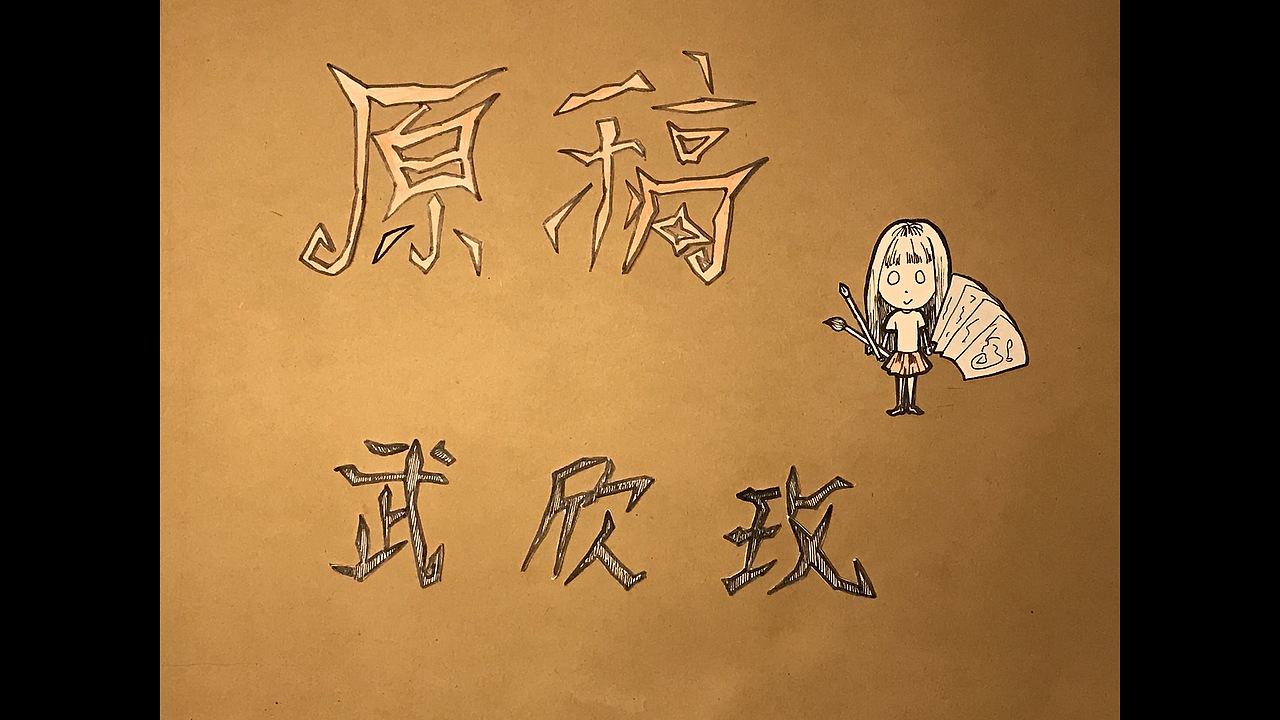 原稿
武欣玫